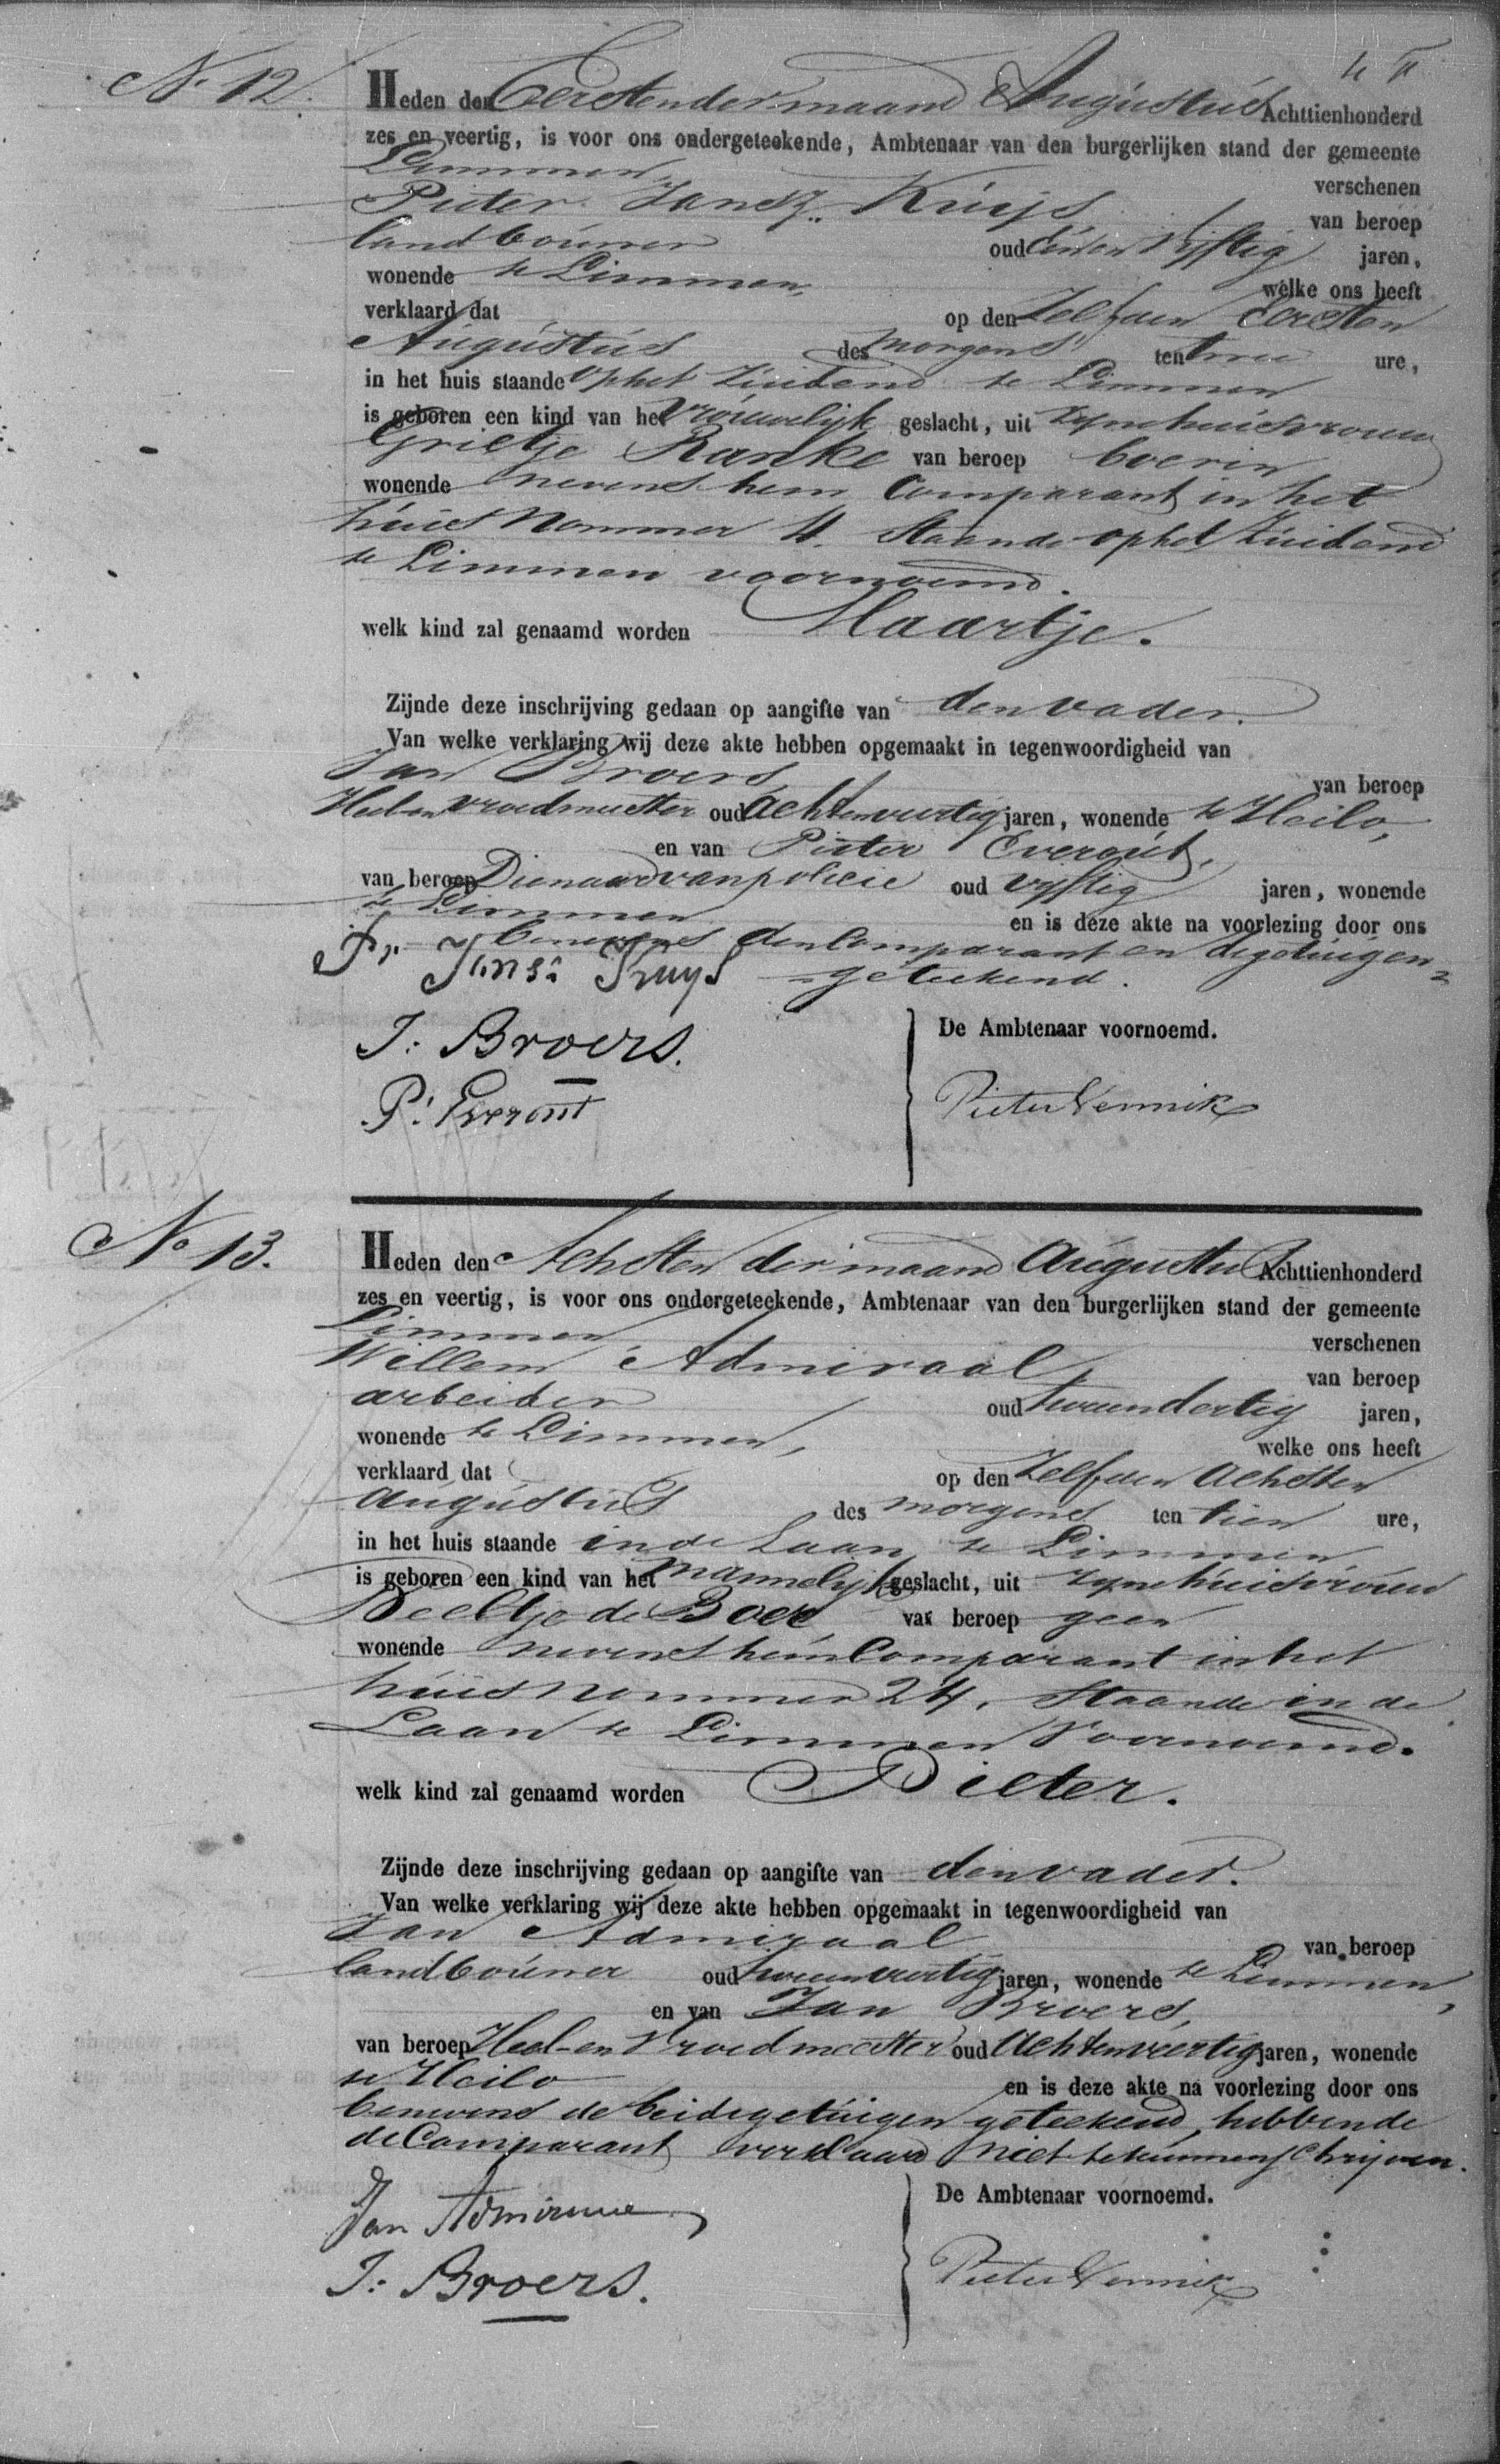 No 12.
Heden den Eersten der maand Augustus Achttienhonderd
zes en veertig, is voor ons ondergeteekende, Ambtenaar van den burgerlijken stand der gemeente
Limmen, verschenen
Pieter Jansz. Kuijs van beroep
landbouwer oud Een en vijftig jaren,
wonende te Limmen, welke ons heeft
verklaard dat op den Zelfden Eersten
Augustus des morgens ten twee ure,
in het huis staande op het Zuidend te Limmen
is geboren een kind van het vrouwelijk geslacht, uit zyne huisvrouw
Grietje Ranke van beroep boerin
wonende nevens hem Comparant in het
huis Nommer 4. staande op het Zuidend
te Limmen voornoemd.
welk kind zal genaamd worden Maartje.
Zijnde deze inschrijving gedaan op aangifte van den vader.
Van welke verklaring wij deze akte hebben opgemaakt in tegenwoordigheid van
Jan Broers van beroep
Heel en vroedmeester oud Acht en veertig jaren, wonende te Heilo,
en van Pieter Everout,
van beroep Dienaar van policie oud vyftig jaren, wonende
te Limmen en is deze akte na voorlezing door ons
benevens den Comparant en de getuigen
geteekend.
Pr. Jansz Kuys
J: Broers.
P: Everout
De Ambtenaar voornoemd.
Pieter Vennik
No 13.
Heden den Achtsten der maand Augustus Achttienhonderd
zes en veertig, is voor ons ondergeteekende, Ambtenaar van den burgerlijken stand der gemeente
Limmen verschenen
Willem Admiraal, van beroep
arbeider oud twee en dertig jaren,
wonende te Limmen, welke ons heeft
verklaard dat op den Zelfden Achtsten
Augustus des morgens ten tien ure,
in het huis staande in de Laan te Limmen,
is geboren een kind van het mannelijk geslacht, uit zyne huisvrouw
Neeltje de Boer van beroep geen
wonende nevens hem Comparant in het
huis nommer 24, staande in de
Laan te Limmen voornoemd.
welk kind zal genaamd worden Pieter.
Zijnde deze inschrijving gedaan op aangifte van den vader.
Van welke verklaring wij deze akte hebben opgemaakt in tegenwoordigheid van
Jan Admiraal van beroep
landbouwer oud twee en veertig jaren, wonende te Limmen,
en van Jan Broers,
van beroep Heel- en Vroedmeester oud Acht en veertig jaren, wonende
te Heilo en is deze akte na voorlezing door ons
benevens de beide getuigen geteekend, hebbende
de Comparant verklaard niet te kunnen schrijven.
Jan Admiraal
J: Broers.
De Ambtenaar voornoemd.
Pieter Vennik